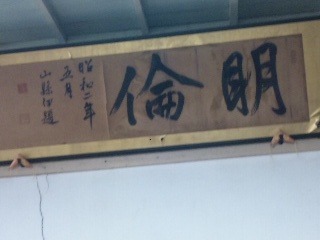 明倫
昭和二年
五月
山縣伊題